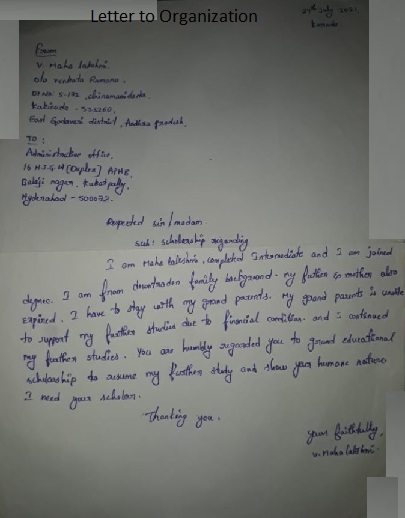 Letter to Organization
27th July 2021.
From
V. Maha lakshmi.
D/o Venkata Ramana.
Kakinada - 533260,
East Godavari district, Andhra pradesh.
To:
Administrative office,
HIG-H [Duplex] APHB,
Balaji nagar, Kukatpally,
Hyderabad - 500072.
Respected sir/madam.
sub: scholership regarding
I am Maha lakshmi, completed Intermediate and I am joined
degree. I am from downtrodden family background. my father & mother also
expired. I have to stay with my grand parents. My grand parents is unable
to support my further studies due to financial condition. and I continued
my further studies. You are humbly regarded you to grand educational
scholarship to resume my further study and show your humane nature
I need your scholar.
Thanking you.
your faithfully,
V. Maha lakshmi.